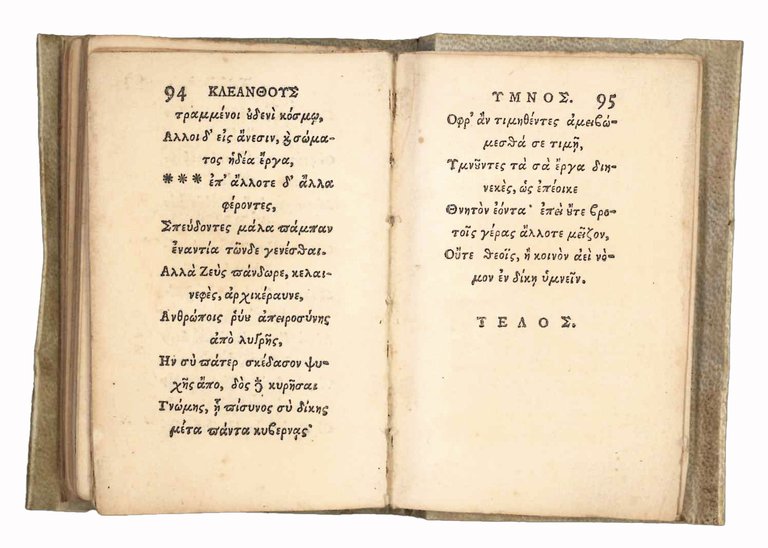 94 ΚΛΕΑΝΘΟΥΣ
τραμμένοι ȣ̓δενὶ κόσμῳ,
Αλλοι δ' εἰς ἄνεσιν, ϗ σώμα-
τος ἡδέα ἔργα,
*** ἐπ' ἄλλοτε δ' ἄλλα
φέροντες,
Σπεύδοντες μάλα πάμπαν
ἐναντία τῶνδε γενέσθαι.
Αλλὰ Ζεὺς πάνδωρε, κελαι-
νεφὲς, ἀρχικέραυνε,
Ανθρώποις ῥύου ἀπειροσύνης
ἀπὸ λυγρῆς,
Ην σὺ πάτερ σκέδασον ψυ-
χῆς ἄπο, δὸς δὲ κυρῆσαι
Γνώμης, ᾗ πίσυνος σὺ δίκης
μέτα πάντα κυβερνᾷς·
ΥΜΝΟΣ. 95
Οφρ' ἂν τιμηθέντες ἀμειβώ-
μεσθά σε τιμῇ,
Ὑμνȣ͂ντες τὰ σὰ ἔργα διη-
νεκὲς, ὡς ἐπέοικε
Θνητὸν ἐόντα· ἐπεὶ ȣ̓́τε βρο-
τοῖς γέρας ἄλλοτε μεῖζον,
Οὔτε θεοῖς, ἢ κοινὸν ἀεὶ νό-
μον ἐν δίκῃ ὑμνεῖν.
ΤΕΛΟΣ.